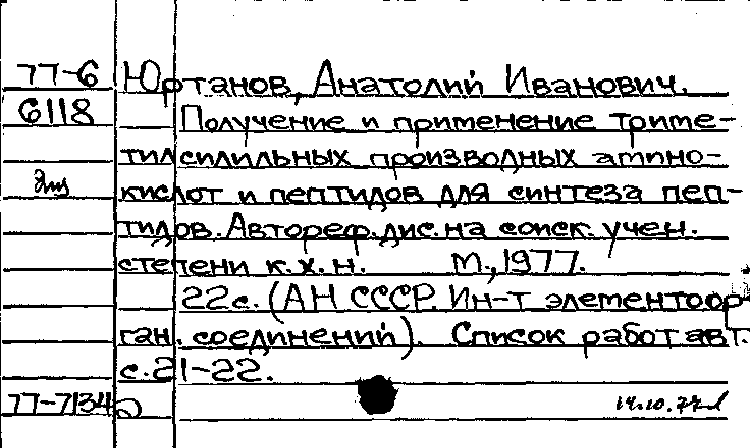 77-6 Юртанов, Анатолий Иванович.
6118 Получение и применение триме-
тилсилильных производных амино-
кислот и пептидов для синтеза пеп-
тидов. Автореф. дис. на соиск. учен.
степени к. х. н. М., 1977.
22с. (АН СССР. Ин-т элементоор-
ган. соединений). Список работ авт.
с. 21-22.
77-7134 14.10.77